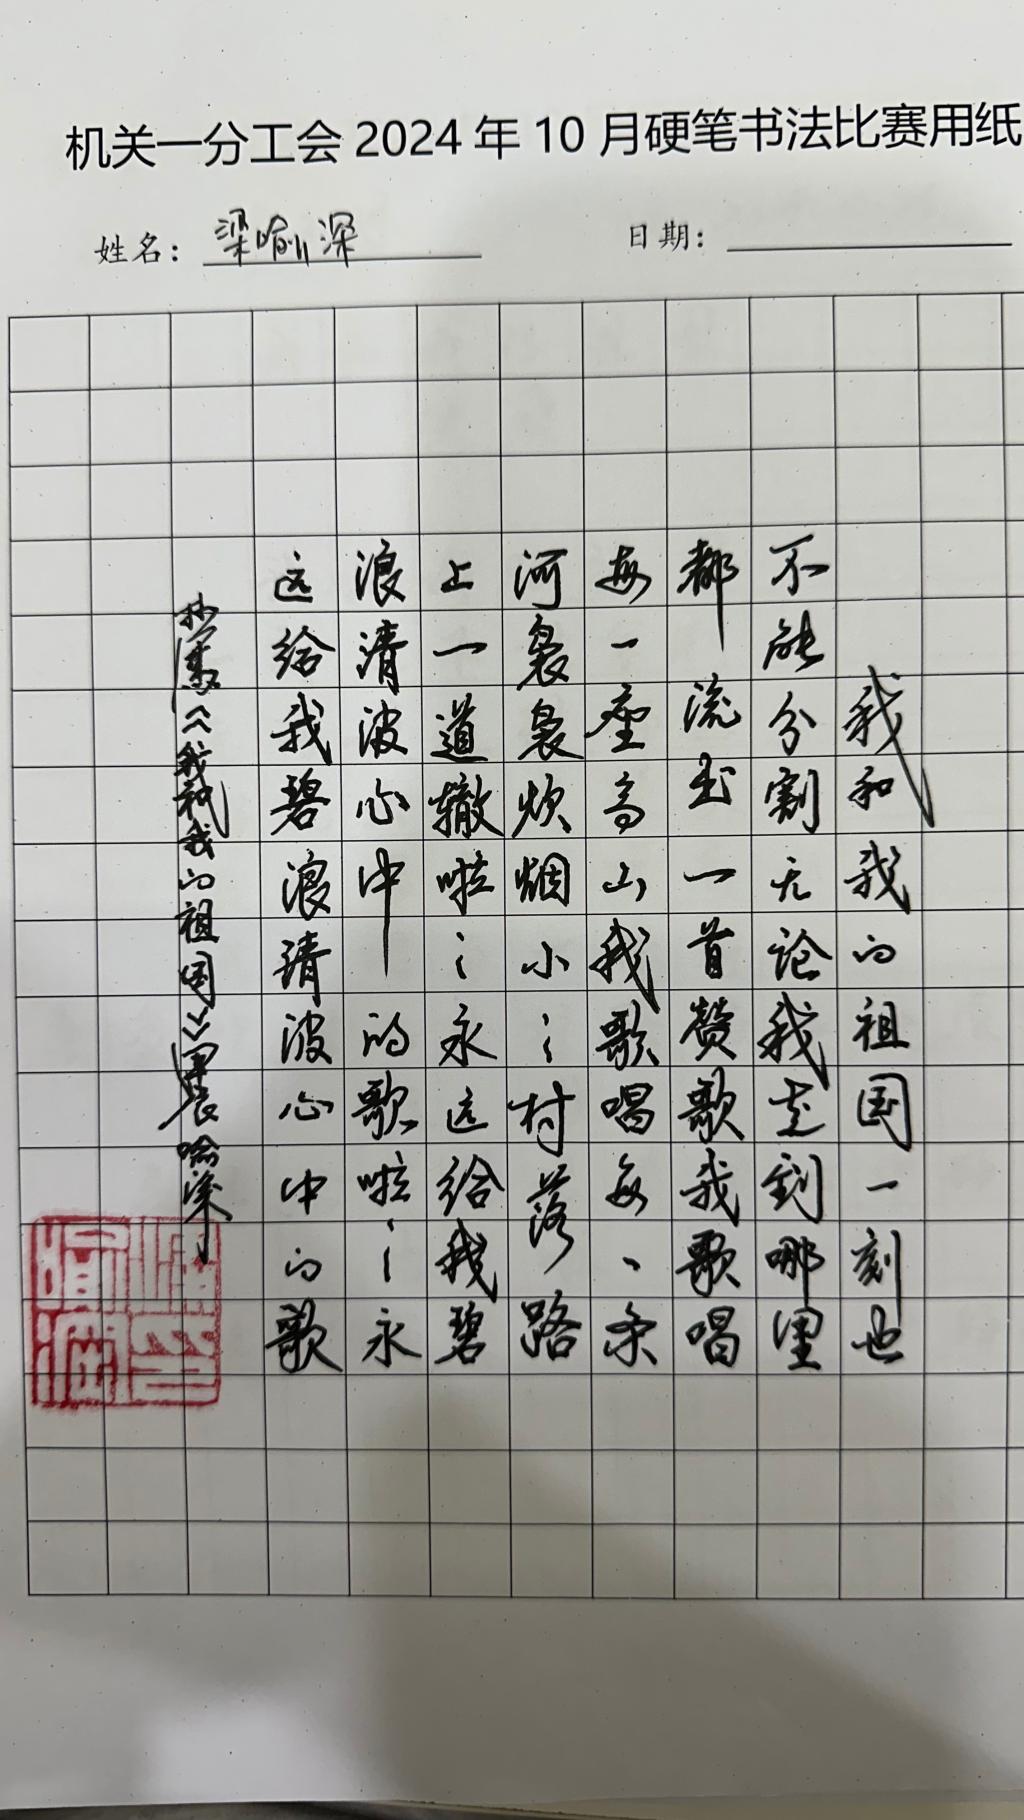 机关一分工会 2024 年 10 月硬笔书法比赛用纸
姓名：梁喻深
日期：
我和我的祖国一刻也
不能分割无论我走到哪里
都流出一首赞歌我歌唱
每一座高山我歌唱每一条
河袅袅炊烟小小村落路
上一道辙啦啦永远给我碧
浪清波心中的歌啦啦永
远给我碧浪清波心中的歌
《我和我的祖国》甲辰喻深